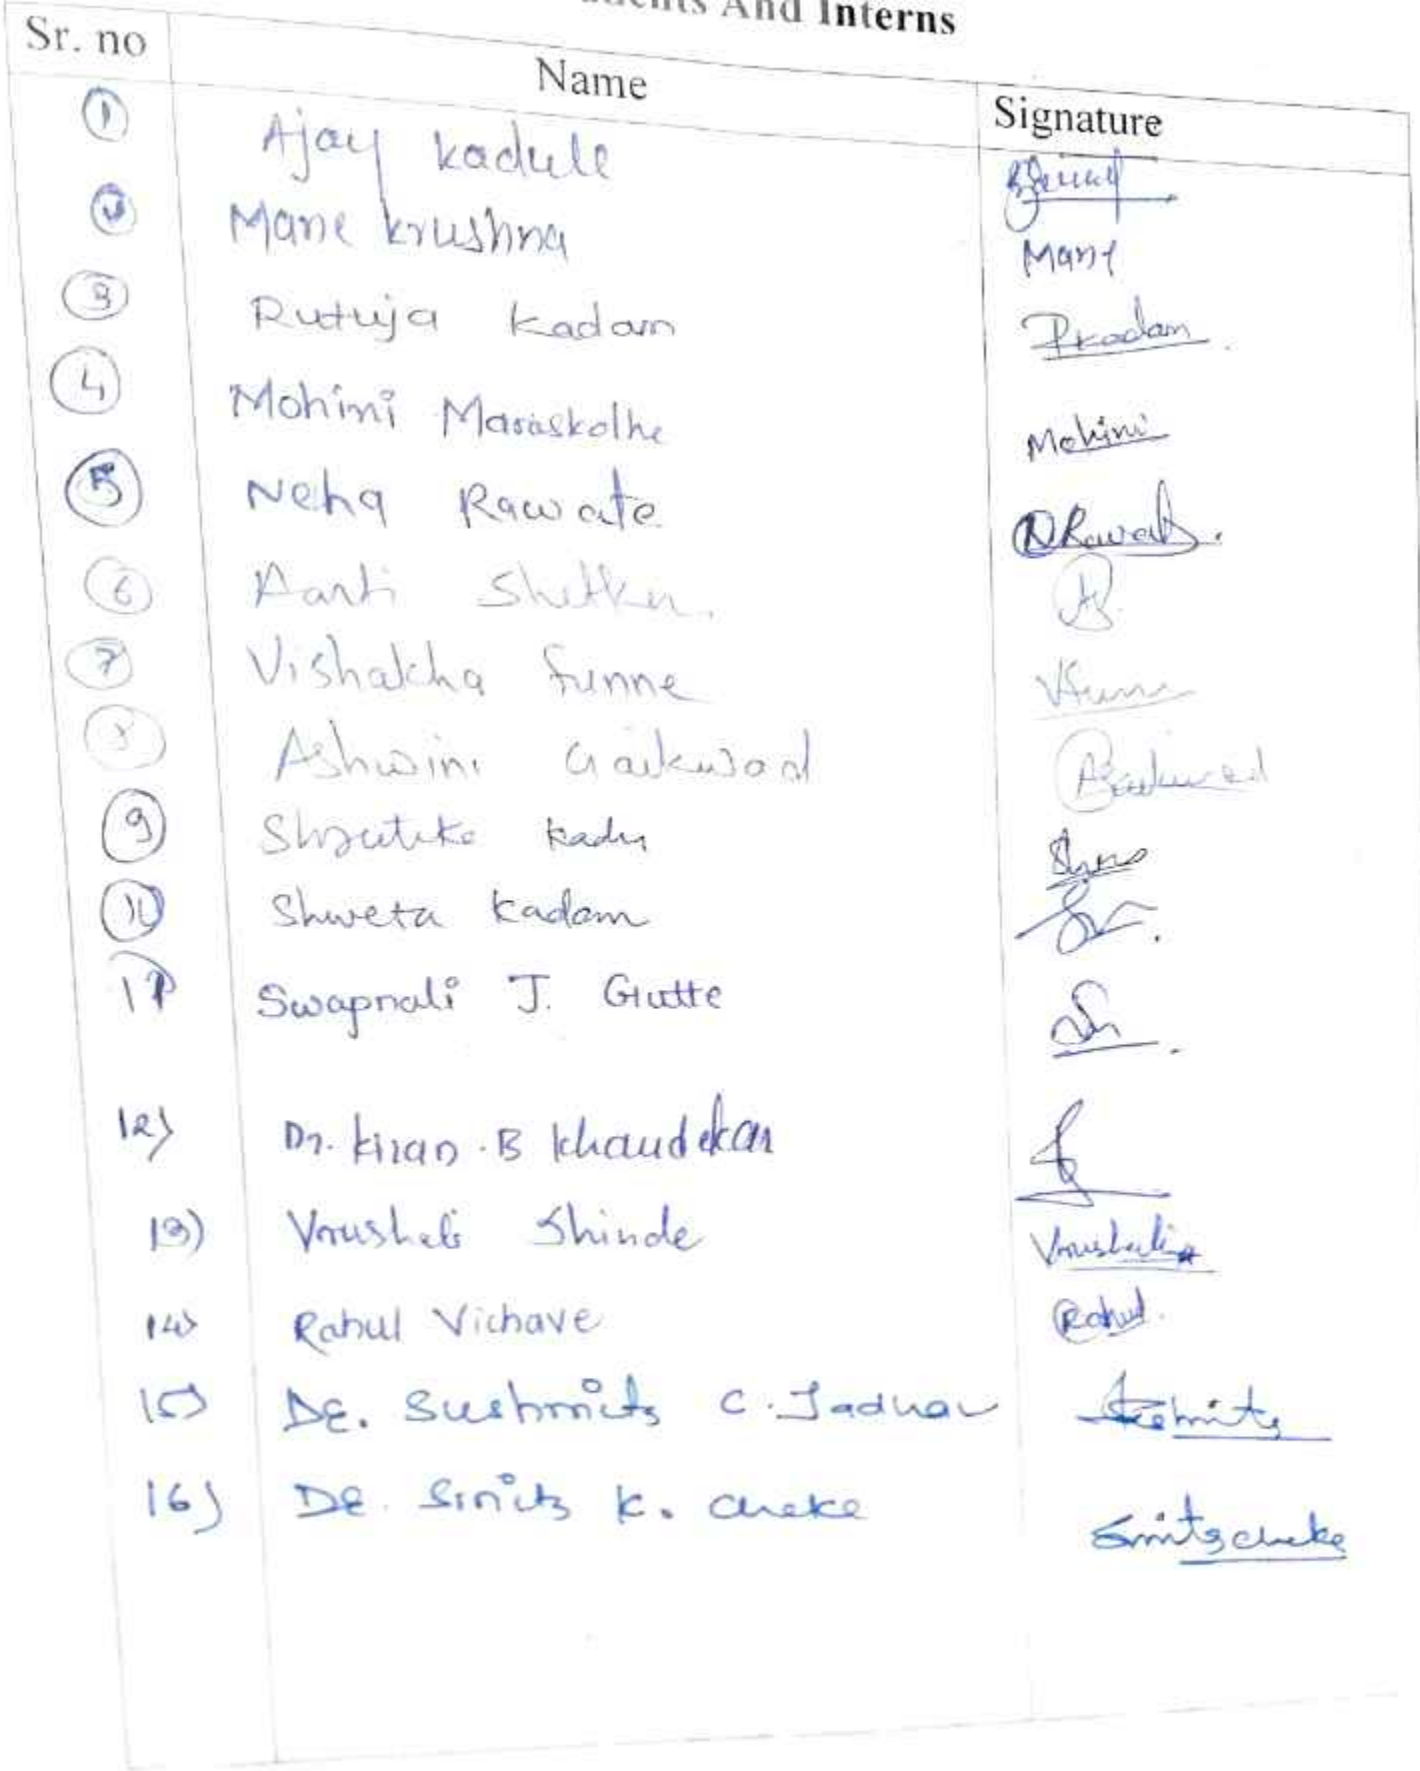 And Interns
Sr. no Name Signature
1 Ajay kadule
2 Mane krushna Mane
3 Rutuja Kadam Rkadam
4 Mohini Maraskolhe Mohini
5 Neha Rawate NRawate.
6 Aarti Shetkar.
7 Vishakha Funne VFunne
8 Ashwini Gaikwad AGaikwad
9 Shrutika kadu
10 Shweta Kadam
11 Swapnali J. Gutte
12) Dr. Kiran .B Khaudekar
13) Vrushali Shinde Vrushali
14) Rahul Vichave Rahul.
15) Dr. Sushmita C. Jadhav Sushmita
16) Dr. Smita K. Cheke Smitacheke